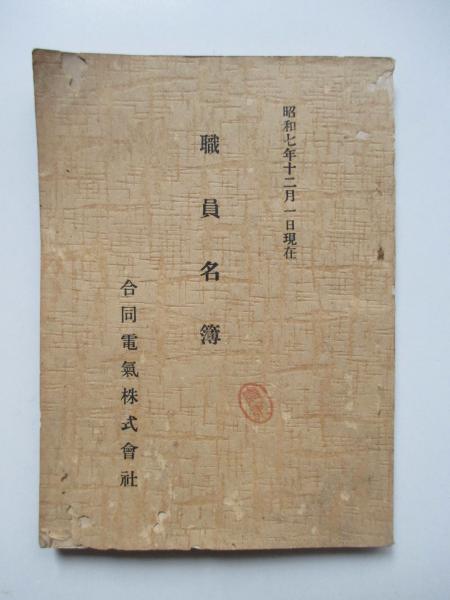 昭和七年十二月一日現在
職員名簿
合同電氣株式會社